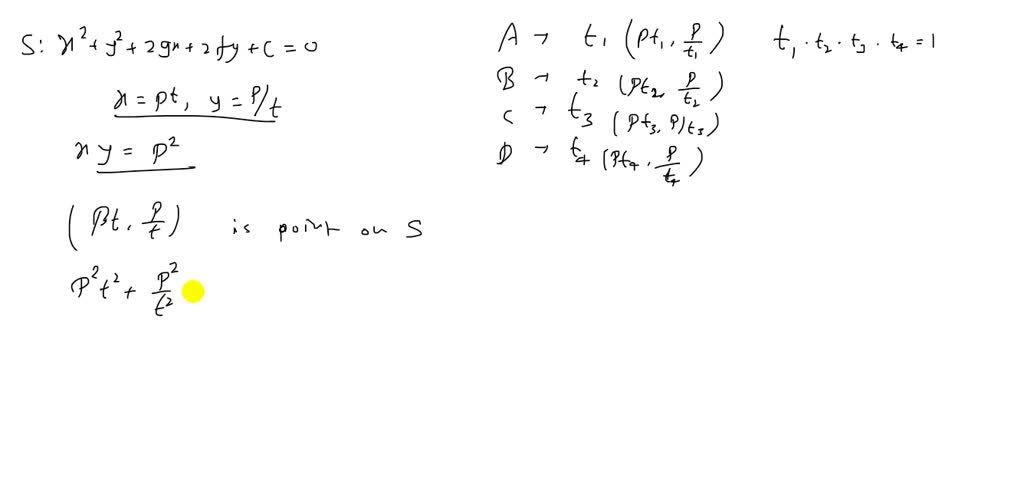 S: x² + y² + 2gx + 2fy + c = 0
x = pt, y = P/t
x y = p²
(Pt, P/t) is point on S
P²t² + P²/t²
A → t₁ (Pt₁, P/t₁) t₁ · t₂ · t₃ · t₄ = 1
B → t₂ (Pt₂, P/t₂)
C → t₃ (Pt₃, P/t₃)
D → t₄ (Pt₄, P/t₄)